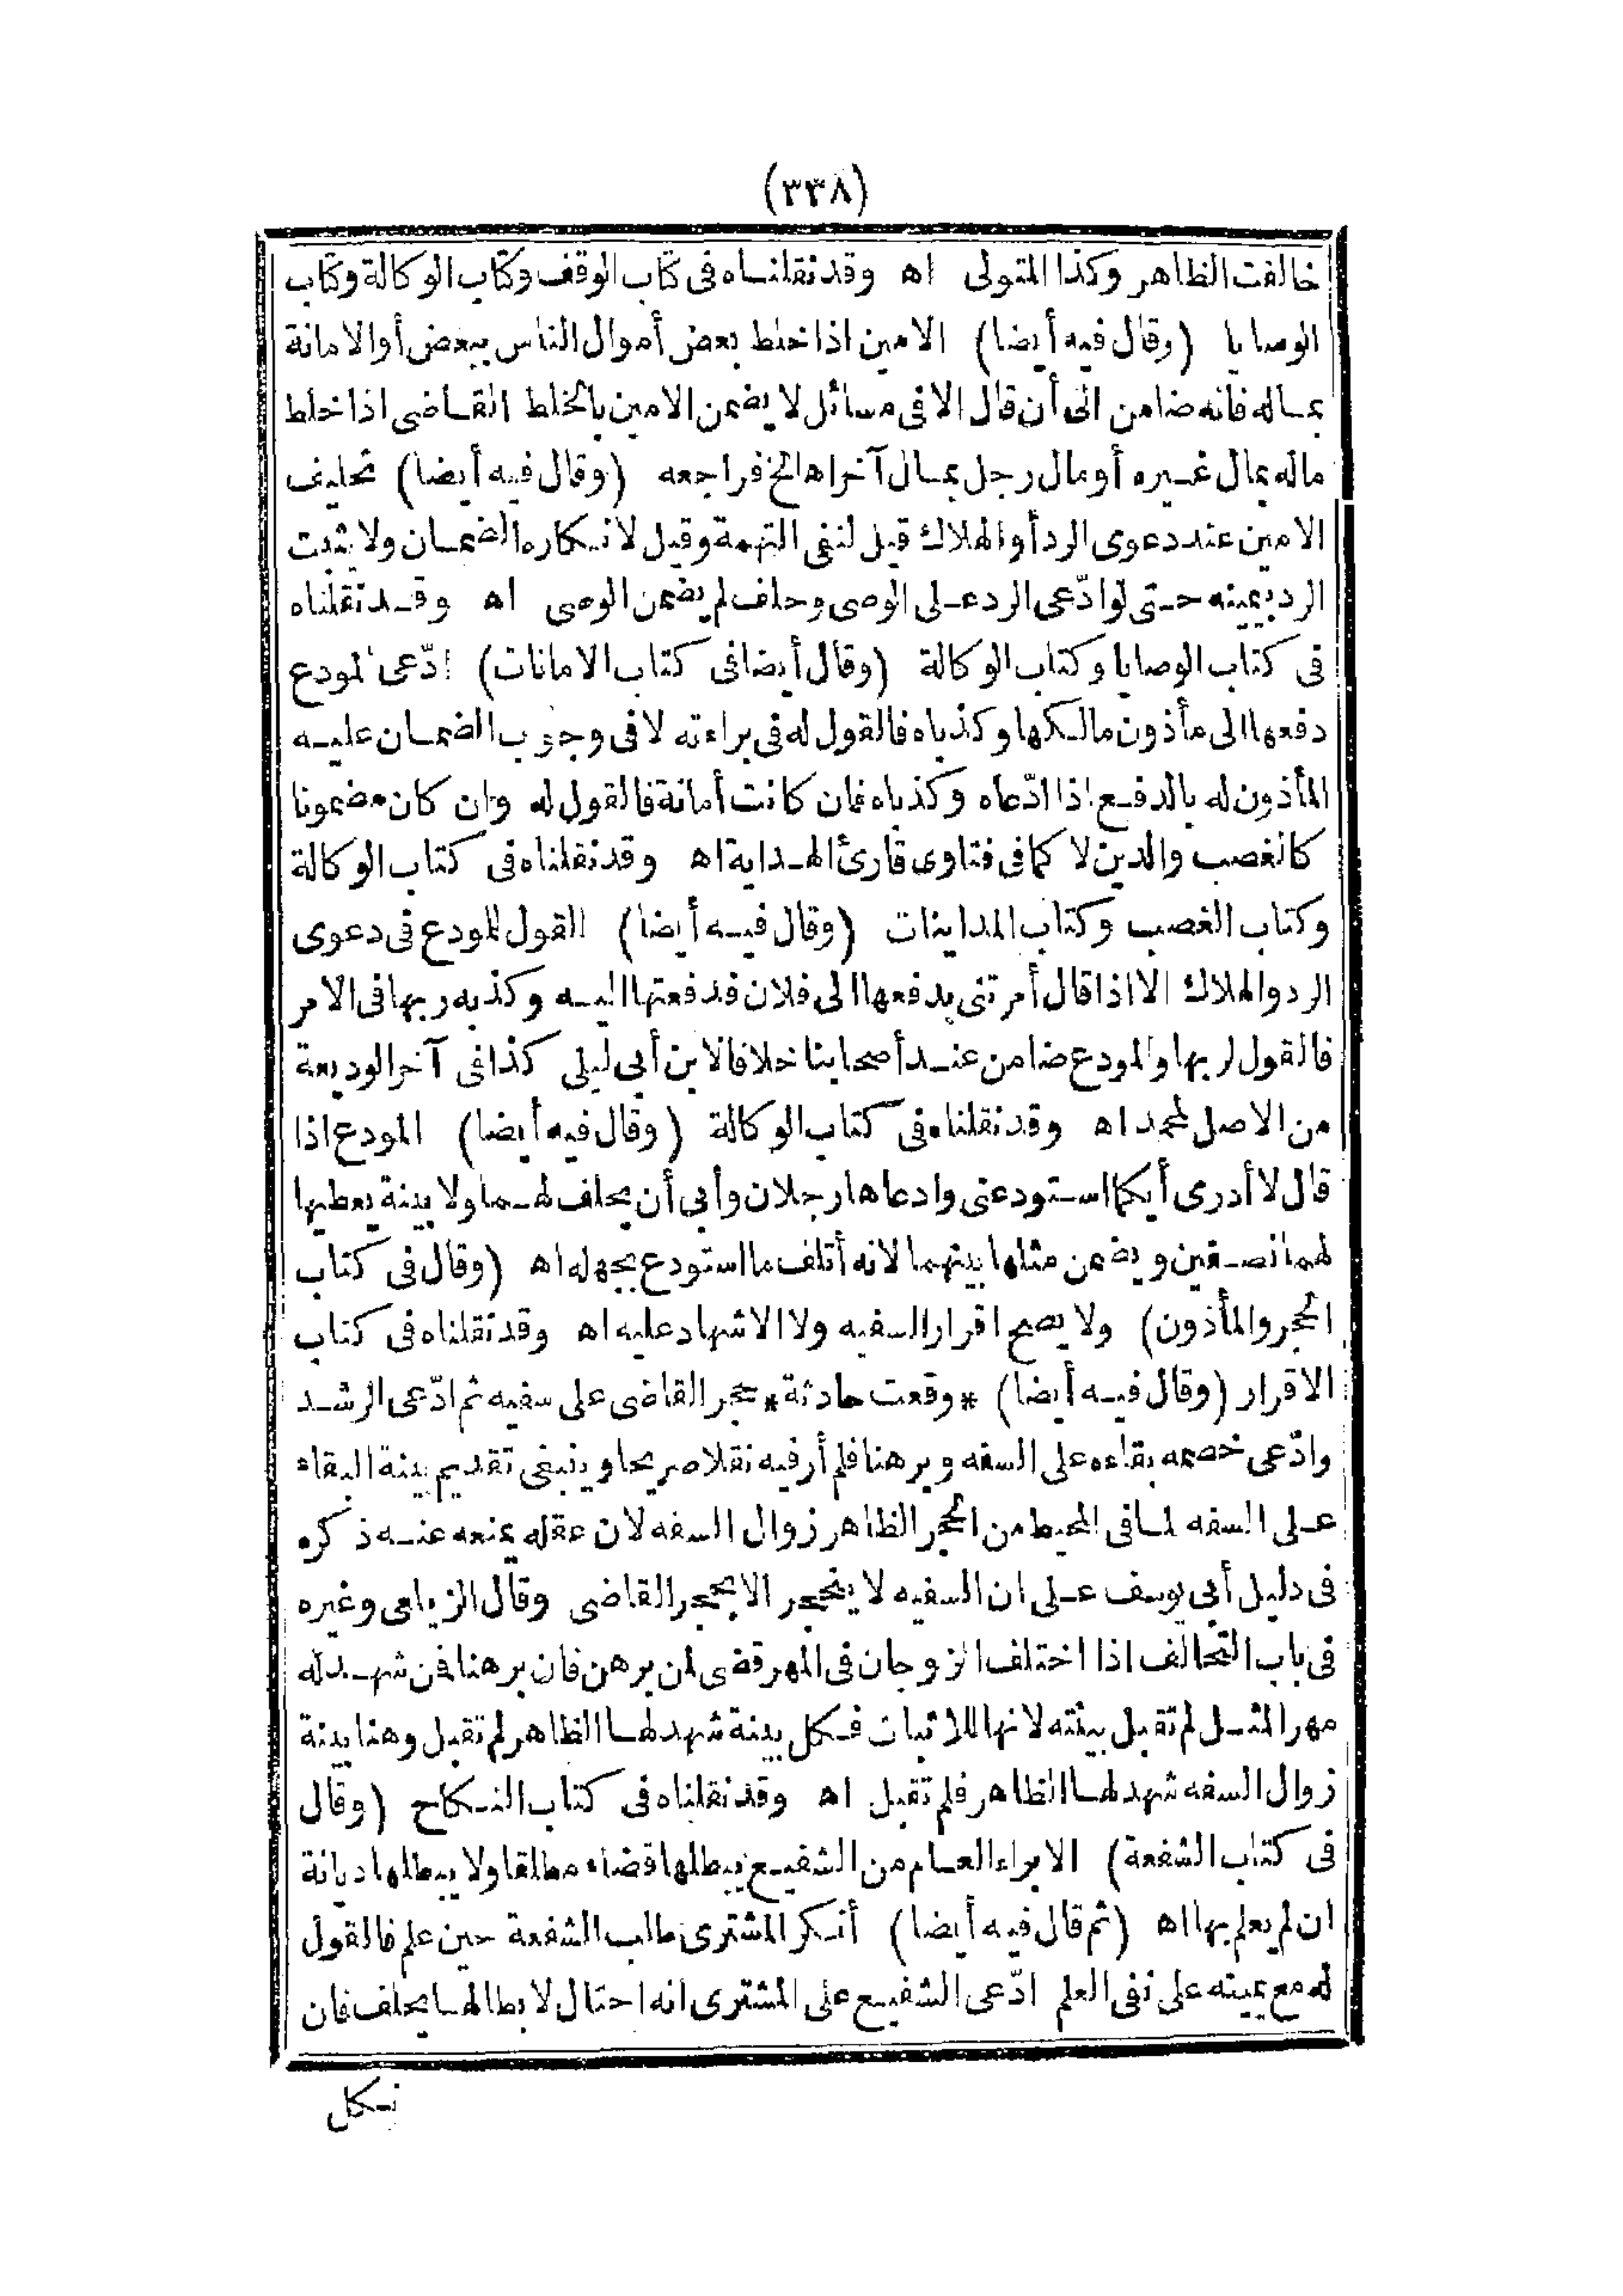 (٣٣٨)
خالفت الظاهر وكذا المتولى اه وقد نقلناه فى كتاب الوقف وكتاب الوكالة وكتاب
الوصايا (وقال فيه أيضا) الامين اذا خلط بعض أموال الناس ببعض أو الامانة
بماله فانه ضامن الى أن قال الا فى مسائل لا يضمن الامين بالخلط القاضى اذا خلط
ماله بمال غيره أو مال رجل بمال آخر اه الخ فراجعه (وقال فيه أيضا) تحليف
الامين عند دعوى الرد أو الهلاك قيل لنفى التهمة وقيل لانكاره الضمان ولا يثبت
الرد بيمينه حتى لو ادّعى الرد على الوصى وحلف لم يضمن الوصى اه وقد نقلناه
فى كتاب الوصايا وكتاب الوكالة (وقال أيضا فى كتاب الامانات) ادّعى المودع
دفعها الى مأذون مالكها وكذباه فالقول له فى براءته لا فى وجوب الضمان عليه
المأذون له بالدفع اذا ادّعاه وكذباه فان كانت أمانة فالقول له وان كان مضمونا
كالغصب والدين لا كما فى فتاوى قارئ الهداية اه وقد نقلناه فى كتاب الوكالة
وكتاب الغصب وكتاب المداينات (وقال فيه أيضا) القول للمودع فى دعوى
الرد والهلاك الا اذا قال أمرتنى بدفعها الى فلان فدفعتها اليه وكذبه ربها فى الامر
فالقول لربها والمودع ضامن عند أصحابنا خلافا لابن أبى ليلى كذا فى آخر الوديعة
من الاصل لمحمد اه وقد نقلناه فى كتاب الوكالة (وقال فيه أيضا) المودع اذا
قال لا أدرى أيكما استودعنى وادعاها رجلان وأبى أن يحلف لهما ولا بينة يعطيها
لهما نصفين ويضمن مثلها بينهما لانه أتلف ما استودع بجهله اه (وقال فى كتاب
الحجر والمأذون) ولا يصح اقرار السفيه ولا الاشهاد عليه اه وقد نقلناه فى كتاب
الاقرار (وقال فيه أيضا) *وقعت حادثة* حجر القاضى على سفيه ثم ادّعى الرشد
وادّعى خصمه بقاءه على السفه وبرهنا فلم أر فيه نقلا صريحا وينبغى تقديم بينة البقاء
على السفه لما فى المحيط من الحجر الظاهر زوال السفه لان عقله يمنعه عنه ذكره
فى دليل أبى يوسف على ان السفيه لا ينحجر الا بحجر القاضى وقال الزيلعى وغيره
فى باب التحالف اذا اختلف الزوجان فى المهر قضى لمن برهن فان برهنا فمن شهد له
مهر المثل لم تقبل بينته لانها للاثبات فكل بينة شهد لها الظاهر لم تقبل وهنا بينة
زوال السفه شهد لها الظاهر فلم تقبل اه وقد نقلناه فى كتاب النكاح (وقال
فى كتاب الشفعة) الابراء العام من الشفيع يبطلها قضاء مطلقا ولا يبطلها ديانة
ان لم يعلم بها اه (ثم قال فيه أيضا) أنكر المشترى طلب الشفعة حين علم فالقول
له مع يمينه على نفى العلم ادّعى الشفيع على المشترى انه احتال لابطالها يحلف فان
نكل